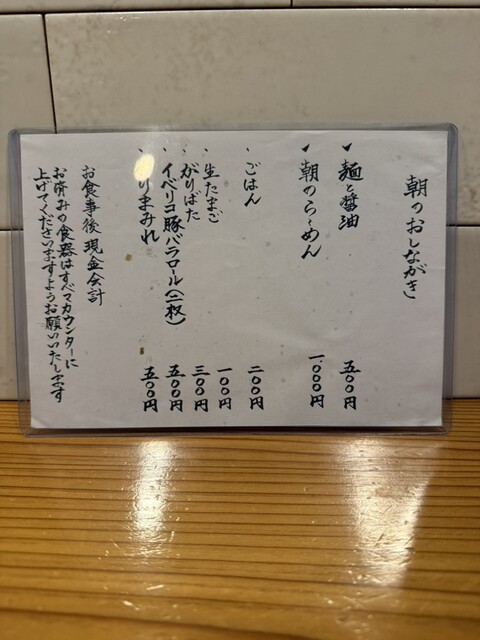 朝のおしながき
麺と醤油 五〇〇円
朝のらーめん 一、〇〇〇円
ごはん 二〇〇円
生たまご 一〇〇円
がりばた 三〇〇円
イベリコ豚バラロール(二枚) 五〇〇円
りまみれ 五〇〇円
お食事後現金会計
お済みの食器はすべてカウンターに
上げてくださいますようお願いいたします